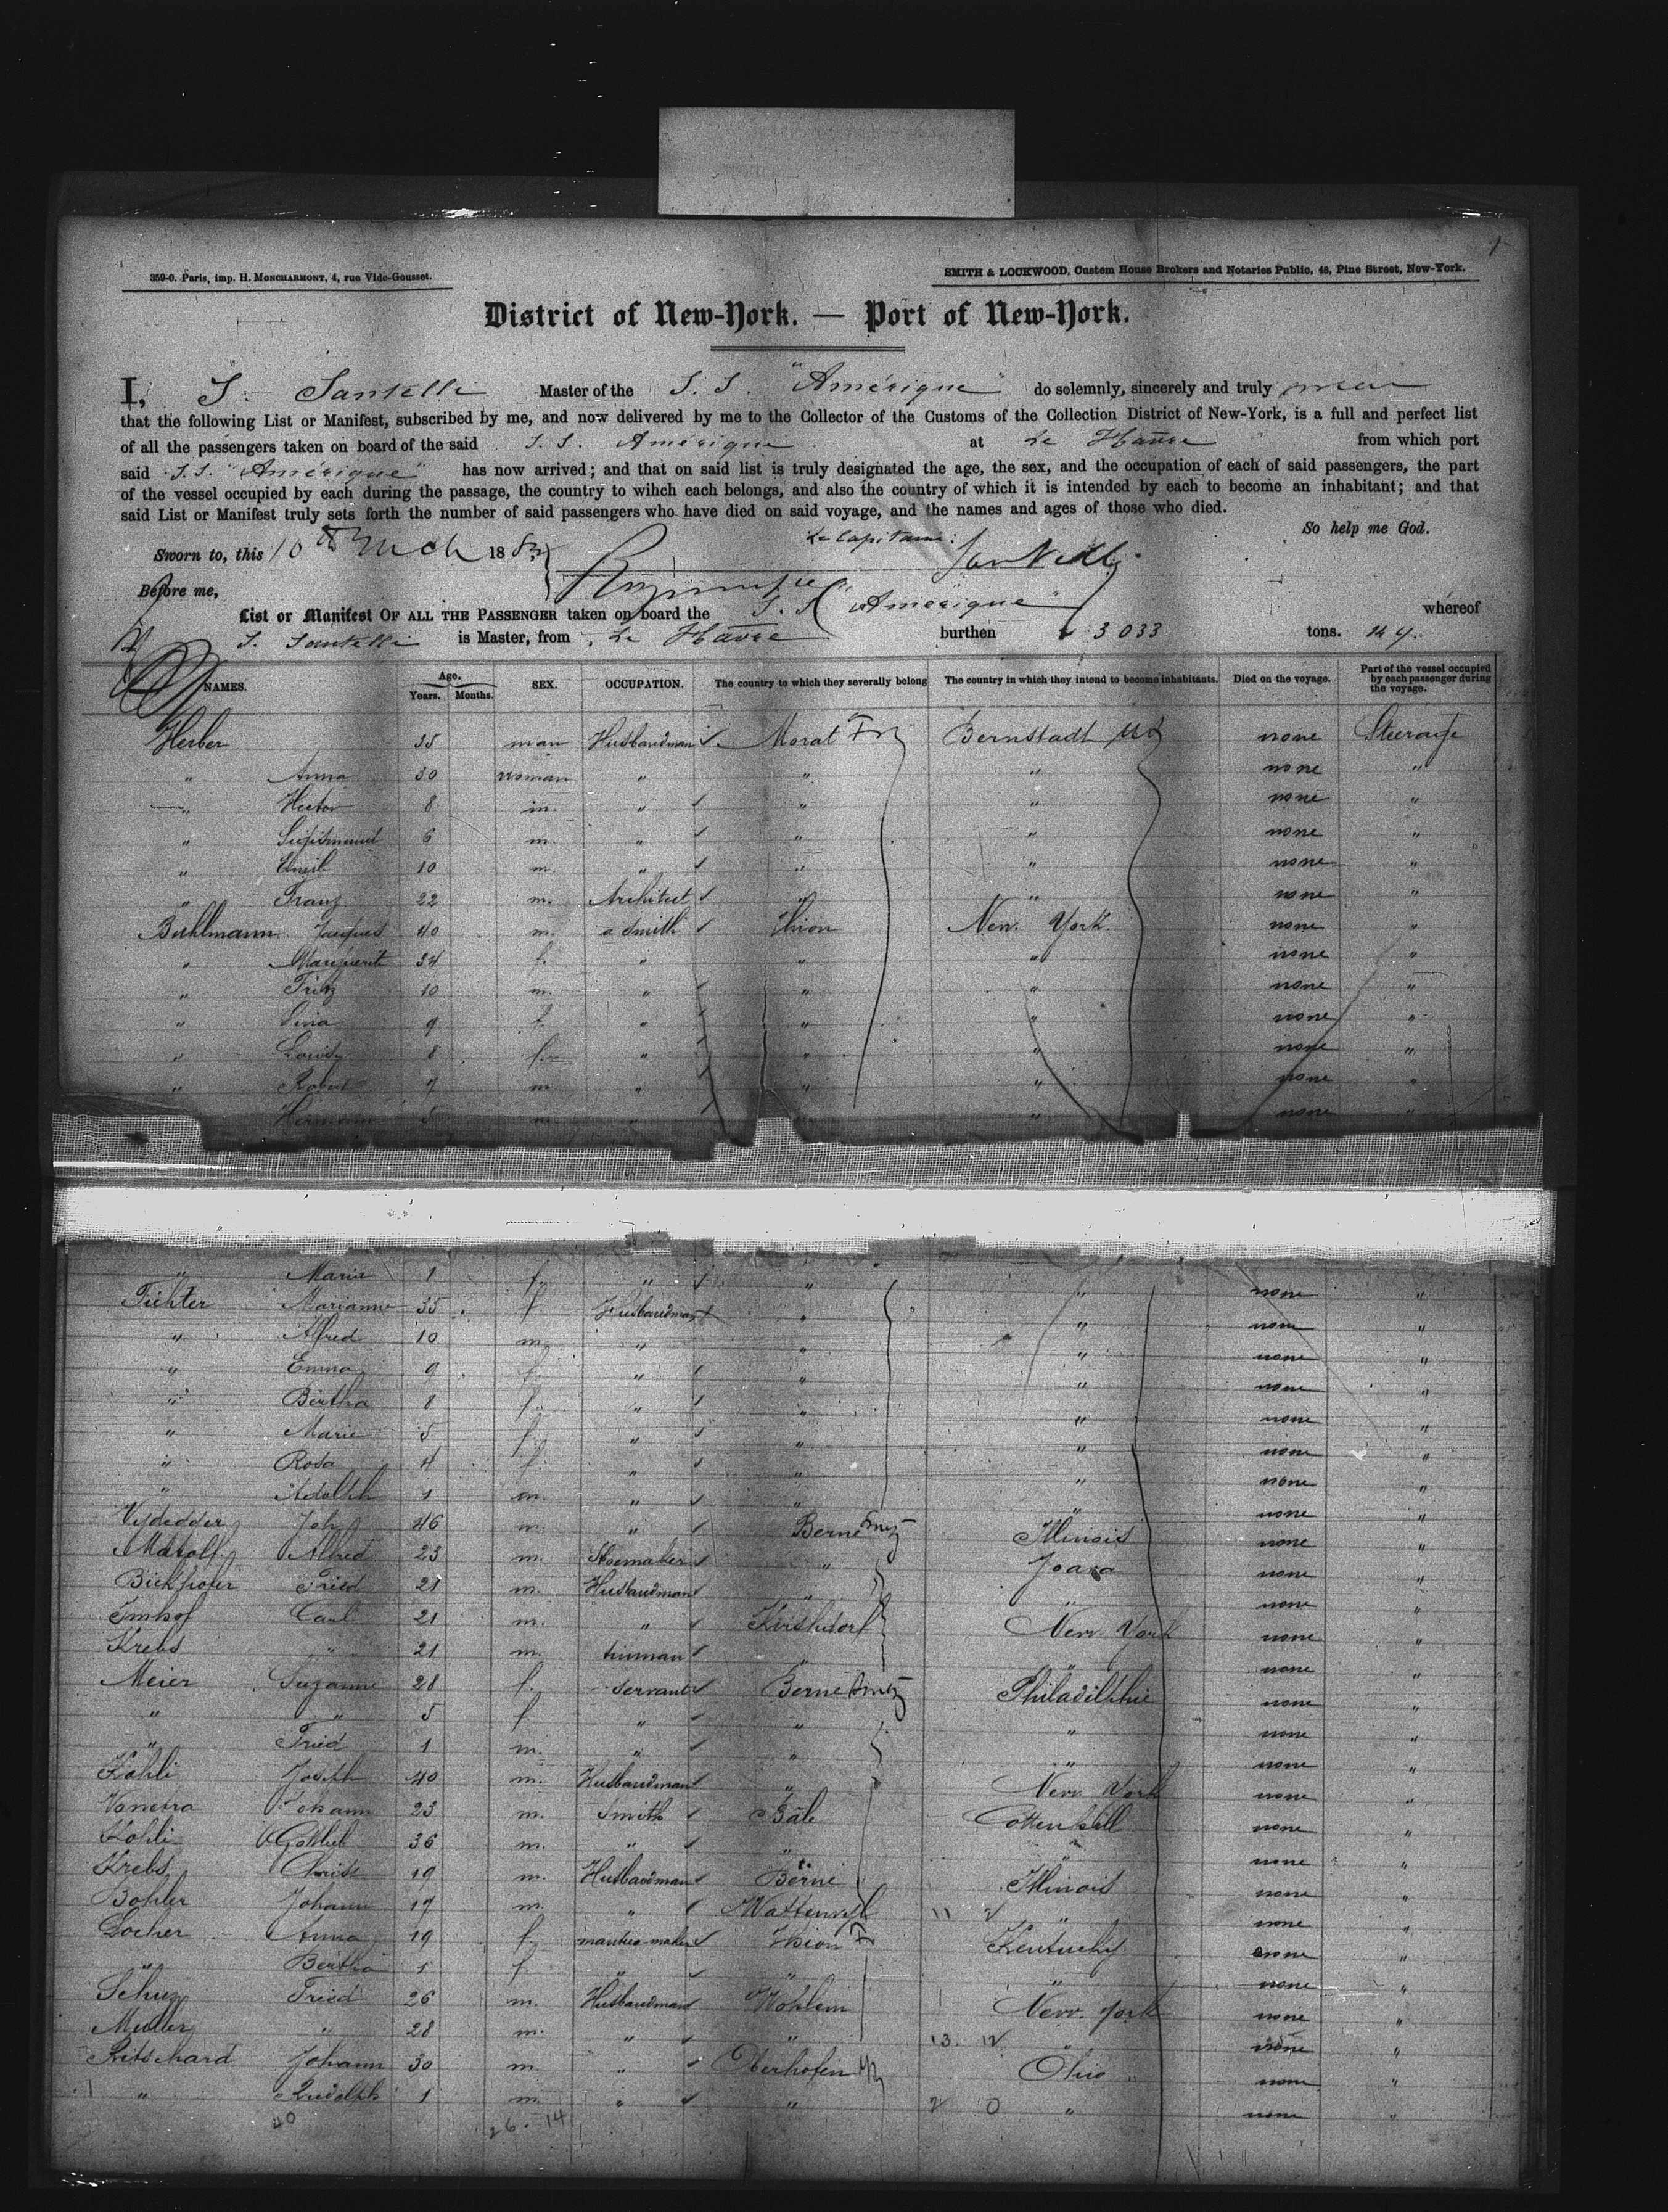 1
359-0. Paris, imp. H. MONCHARMONT, 4, rue Vide-Gousset.
SMITH & LOCKWOOD, Custom House Brokers and Notaries Public, 48, Pine Street, New-York.
District of New-York. — Port of New-York.
I, S. Santelli Master of the S. S. "Amérique" do solemnly, sincerely and truly swear
that the following List or Manifest, subscribed by me, and now delivered by me to the Collector of the Customs of the Collection District of New-York, is a full and perfect list
of all the passengers taken on board of the said S. S. Amérique at Le Havre from which port
said S.S. "Amérique" has now arrived; and that on said list is truly designated the age, the sex, and the occupation of each of said passengers, the part
of the vessel occupied by each during the passage, the country to wihch each belongs, and also the country of which it is intended by each to become an inhabitant; and that
said List or Manifest truly sets forth the number of said passengers who have died on said voyage, and the names and ages of those who died.
So help me God.
Sworn to, this 10th March 188 Le Capitaine: Santelli
Before me,
List or Manifest OF ALL THE PASSENGER taken on board the S. S. "Amérique" whereof
S. Santelli is Master, from Le Havre burthen 3033 tons. 147.
NAMES. Age. Years. Months. SEX. OCCUPATION. The country to which they severally belong The country in which they intend to become inhabitants. Died on the voyage. Part of the vessel occupied by each passenger during the voyage.
Herber 35 man Husbandman Morat Bernstadt none Steerage
" Anna 30 woman " " " none "
" Hector 8 m. " " " none "
" 6 m. " " " none "
" Emil 10 m. " " " none "
" Franz 22 m. Architect " " none "
Buhlmann Jacques 40 m. a Smith Thion New York none "
" Marguerit 34 f. " " " none "
" Fritz 10 m. " " " none "
" Lina 9 f. " " " none "
" 8 f. " " " none "
" Robert 7 m. " " " none "
Hermann 5 m. " " none "
" Marie 1 f. " " " none "
Fichter Marianne 35 f. Husbandman " " none "
" Alfred 10 m. " " " none "
" Emma 9 f. " " " none "
" Bertha 8 f. " " " none "
" Marie 5 f. " " " none "
" Rosa 4 f. " " " none "
" Adolph 1 m. " " " none "
Joh 46 m. " Berne Illinois none "
Alfred 23 m. Shoemaker " Joara none "
Fried 21 m. Husbandman " " none "
Imhof Carl 21 m. " Kirshdorf New York none "
Krebs " 21 m. tinman " " none "
Meier Suzanne 28 f. servant Berne Philadelphie none "
" " 5 f. " " " none "
" Fried 1 m. " " " none "
Kohli Joseph 40 m. Husbandman " New York none "
Johann 23 m. Smith Bale none "
Kohli Gottlieb 36 m. " " " none "
Krebs Christ 19 m. Husbandman Berne Illinois none "
Bohler Johann 17 m. " Wattenwyl 11 2 " none "
Locher Anna 19 f. mantua-maker Thion Fr Kentucky none "
" Bertha 1 f. " " " none "
Schuz Fried 26 m. Husbandman Wohlem New York none "
Muller " 28 m. " " 13. 12 " none "
Ritschard Johann 30 m. " Oberhofen Ohio none "
" Rudolph 1 m. " " 2 0 " none "
40 26 - 14